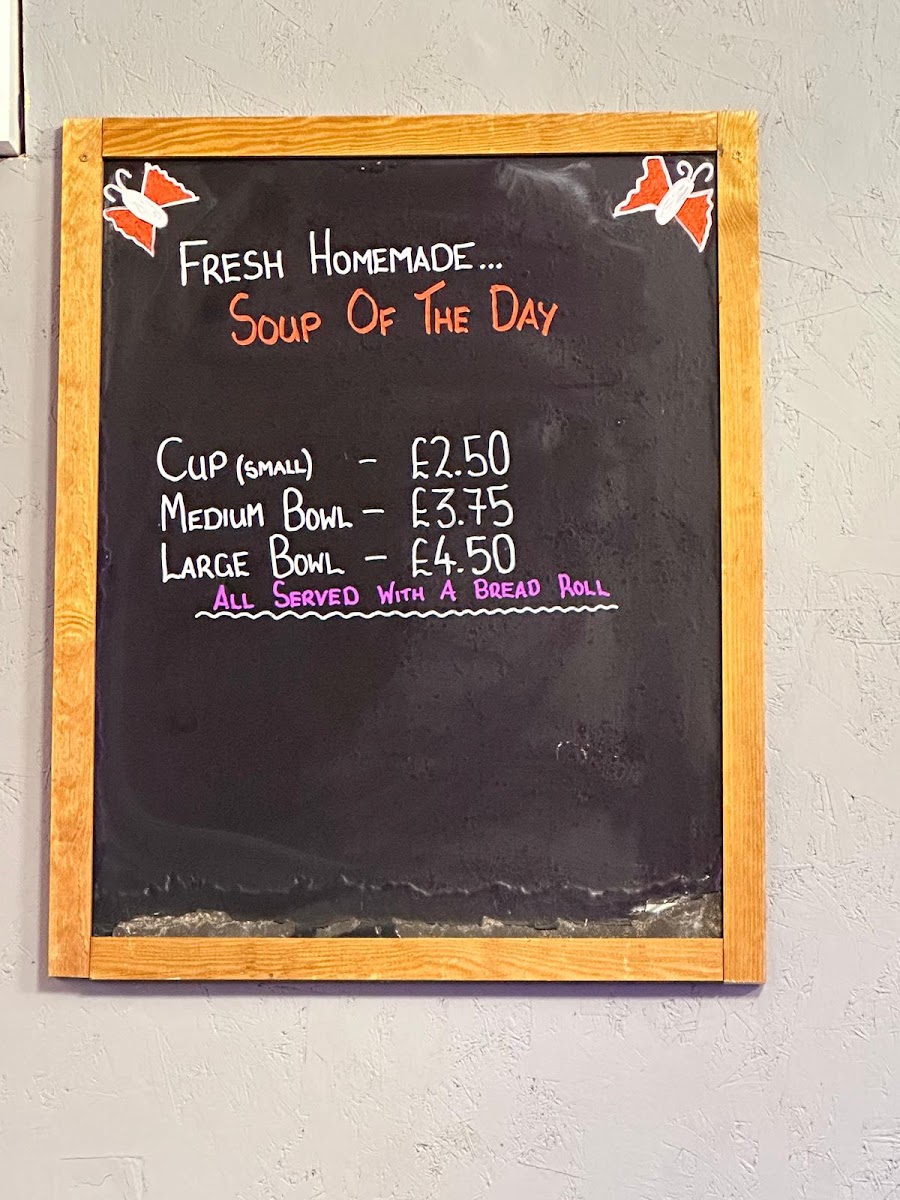 FRESH HOMEMADE...
SOUP OF THE DAY
CUP (SMALL) - £2.50
MEDIUM BOWL - £3.75
LARGE BOWL - £4.50
ALL SERVED WITH A BREAD ROLL